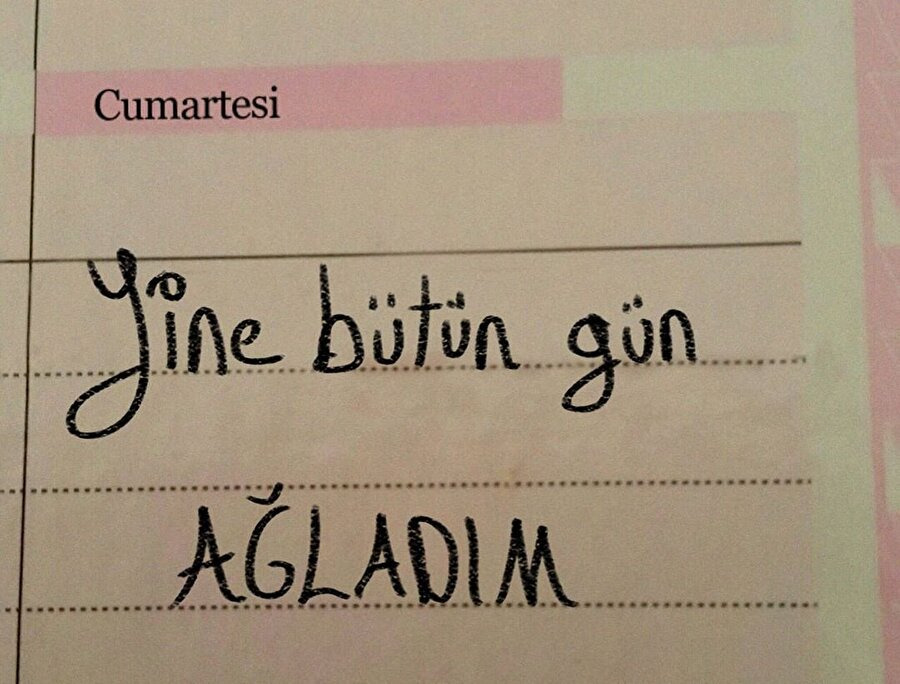 Cumartesi
Yine bütün gün
AĞLADIM